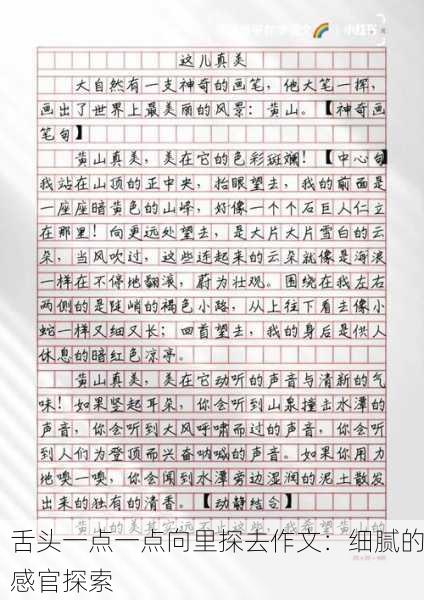 小红书
这儿真美
大自然有一支神奇的画笔，他大笔一挥，
画出了世界上最美丽的风景：黄山。【神奇画
笔句】
黄山真美，美在它的色彩斑斓！【中心句
我站在山顶的正中央，抬眼望去，我的前面是
一座座暗黄色的山峰，好像一个个石巨人伫立
在那里！向更远处望去，是大片大片雪白的云
朵，当风吹过，这些连起来的云朵就像是海浪
一样在不停地翻滚，蔚为壮观。围绕在我左右
两侧的是陡峭的褐色小路，从上往下看去像小
蛇一样又细又长；回首望去，我的身后是供人
休息的暗红色凉亭。
黄山真美，美在它动听的声音与清新的气
味！如果竖起耳朵，你会听到山泉撞击水潭的
声音，你会听到大风呼啸而过的声音，你会听
到人们为登顶而兴奋呐喊的声音。如果你用力
地嗅一嗅，你会闻到水潭旁边湿润的泥土散发
出来的独有的清香。【动静结合】
黄山的美其实远不止这些，我希望黄山的
舌头一点一点向里探去作文：细腻的
感官探索